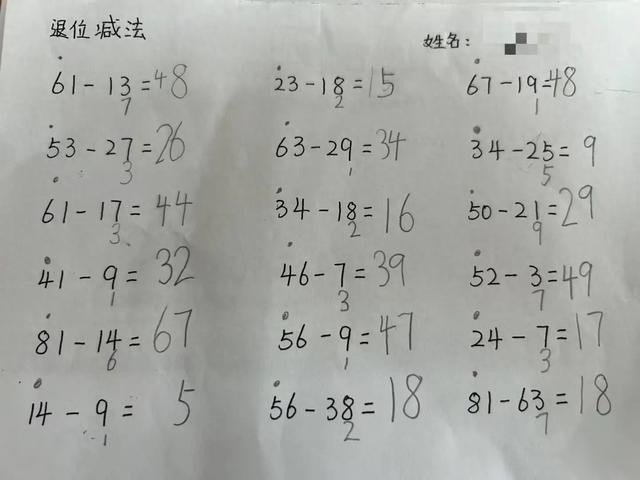 退位减法
姓名:
61-13=48 23-18=15 67-19=48
7 2 1
53-27=26 63-29=34 34-25=9
3 1 5
61-17=44 34-18=16 50-21=29
3 2 9
41-9=32 46-7=39 52-3=49
1 3 7
81-14=67 56-9=47 24-7=17
6 1 3
14-9=5 56-38=18 81-63=18
1 2 7